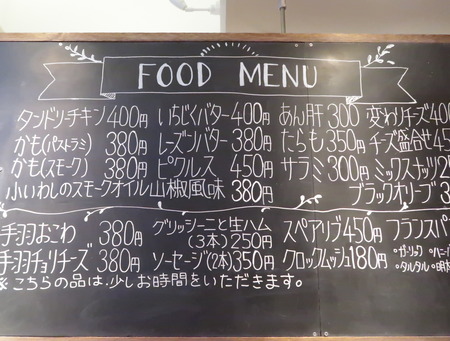 FOOD MENU
タンドリーチキン400円 いちじくバター400円 あん肝300 変わりチーズ40
かも(パストラミ) 380円 レーズンバター380円 たらも350円 チーズ盛合せ45
かも(スモーク) 380円 ピクルス 450円 サラミ300円 ミックスナッツ2
小いわしのスモークオイル山椒風味 380円 ブラックオリーブ3
手羽おこわ 380円 グリッシーニと生ハム(3本)250円 スペアリブ450円 フランスパ
手羽チョリチーズ380円 ソーセージ(2本)350円 クロックムッシュ180円 •ガーリック •ハニー
•タルタル •明太
※こちらの品は、少しお時間をいただきます。